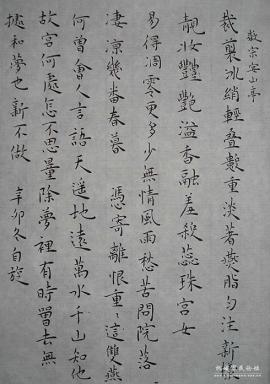 徽宗宴山亭
裁翦冰綃輕叠數重淡著燕脂勻注新
靚妝豔艷溢香融羞殺蕊珠宮女
易得凋零更多少無情風雨愁苦問院落
淒涼幾番春暮 憑寄離恨重重這雙燕
何曾會人言語天遥地遠萬水千山知他
故宮何處怎不思量除夢裡有時曾去無
據和夢也新不做 辛卯冬自旋